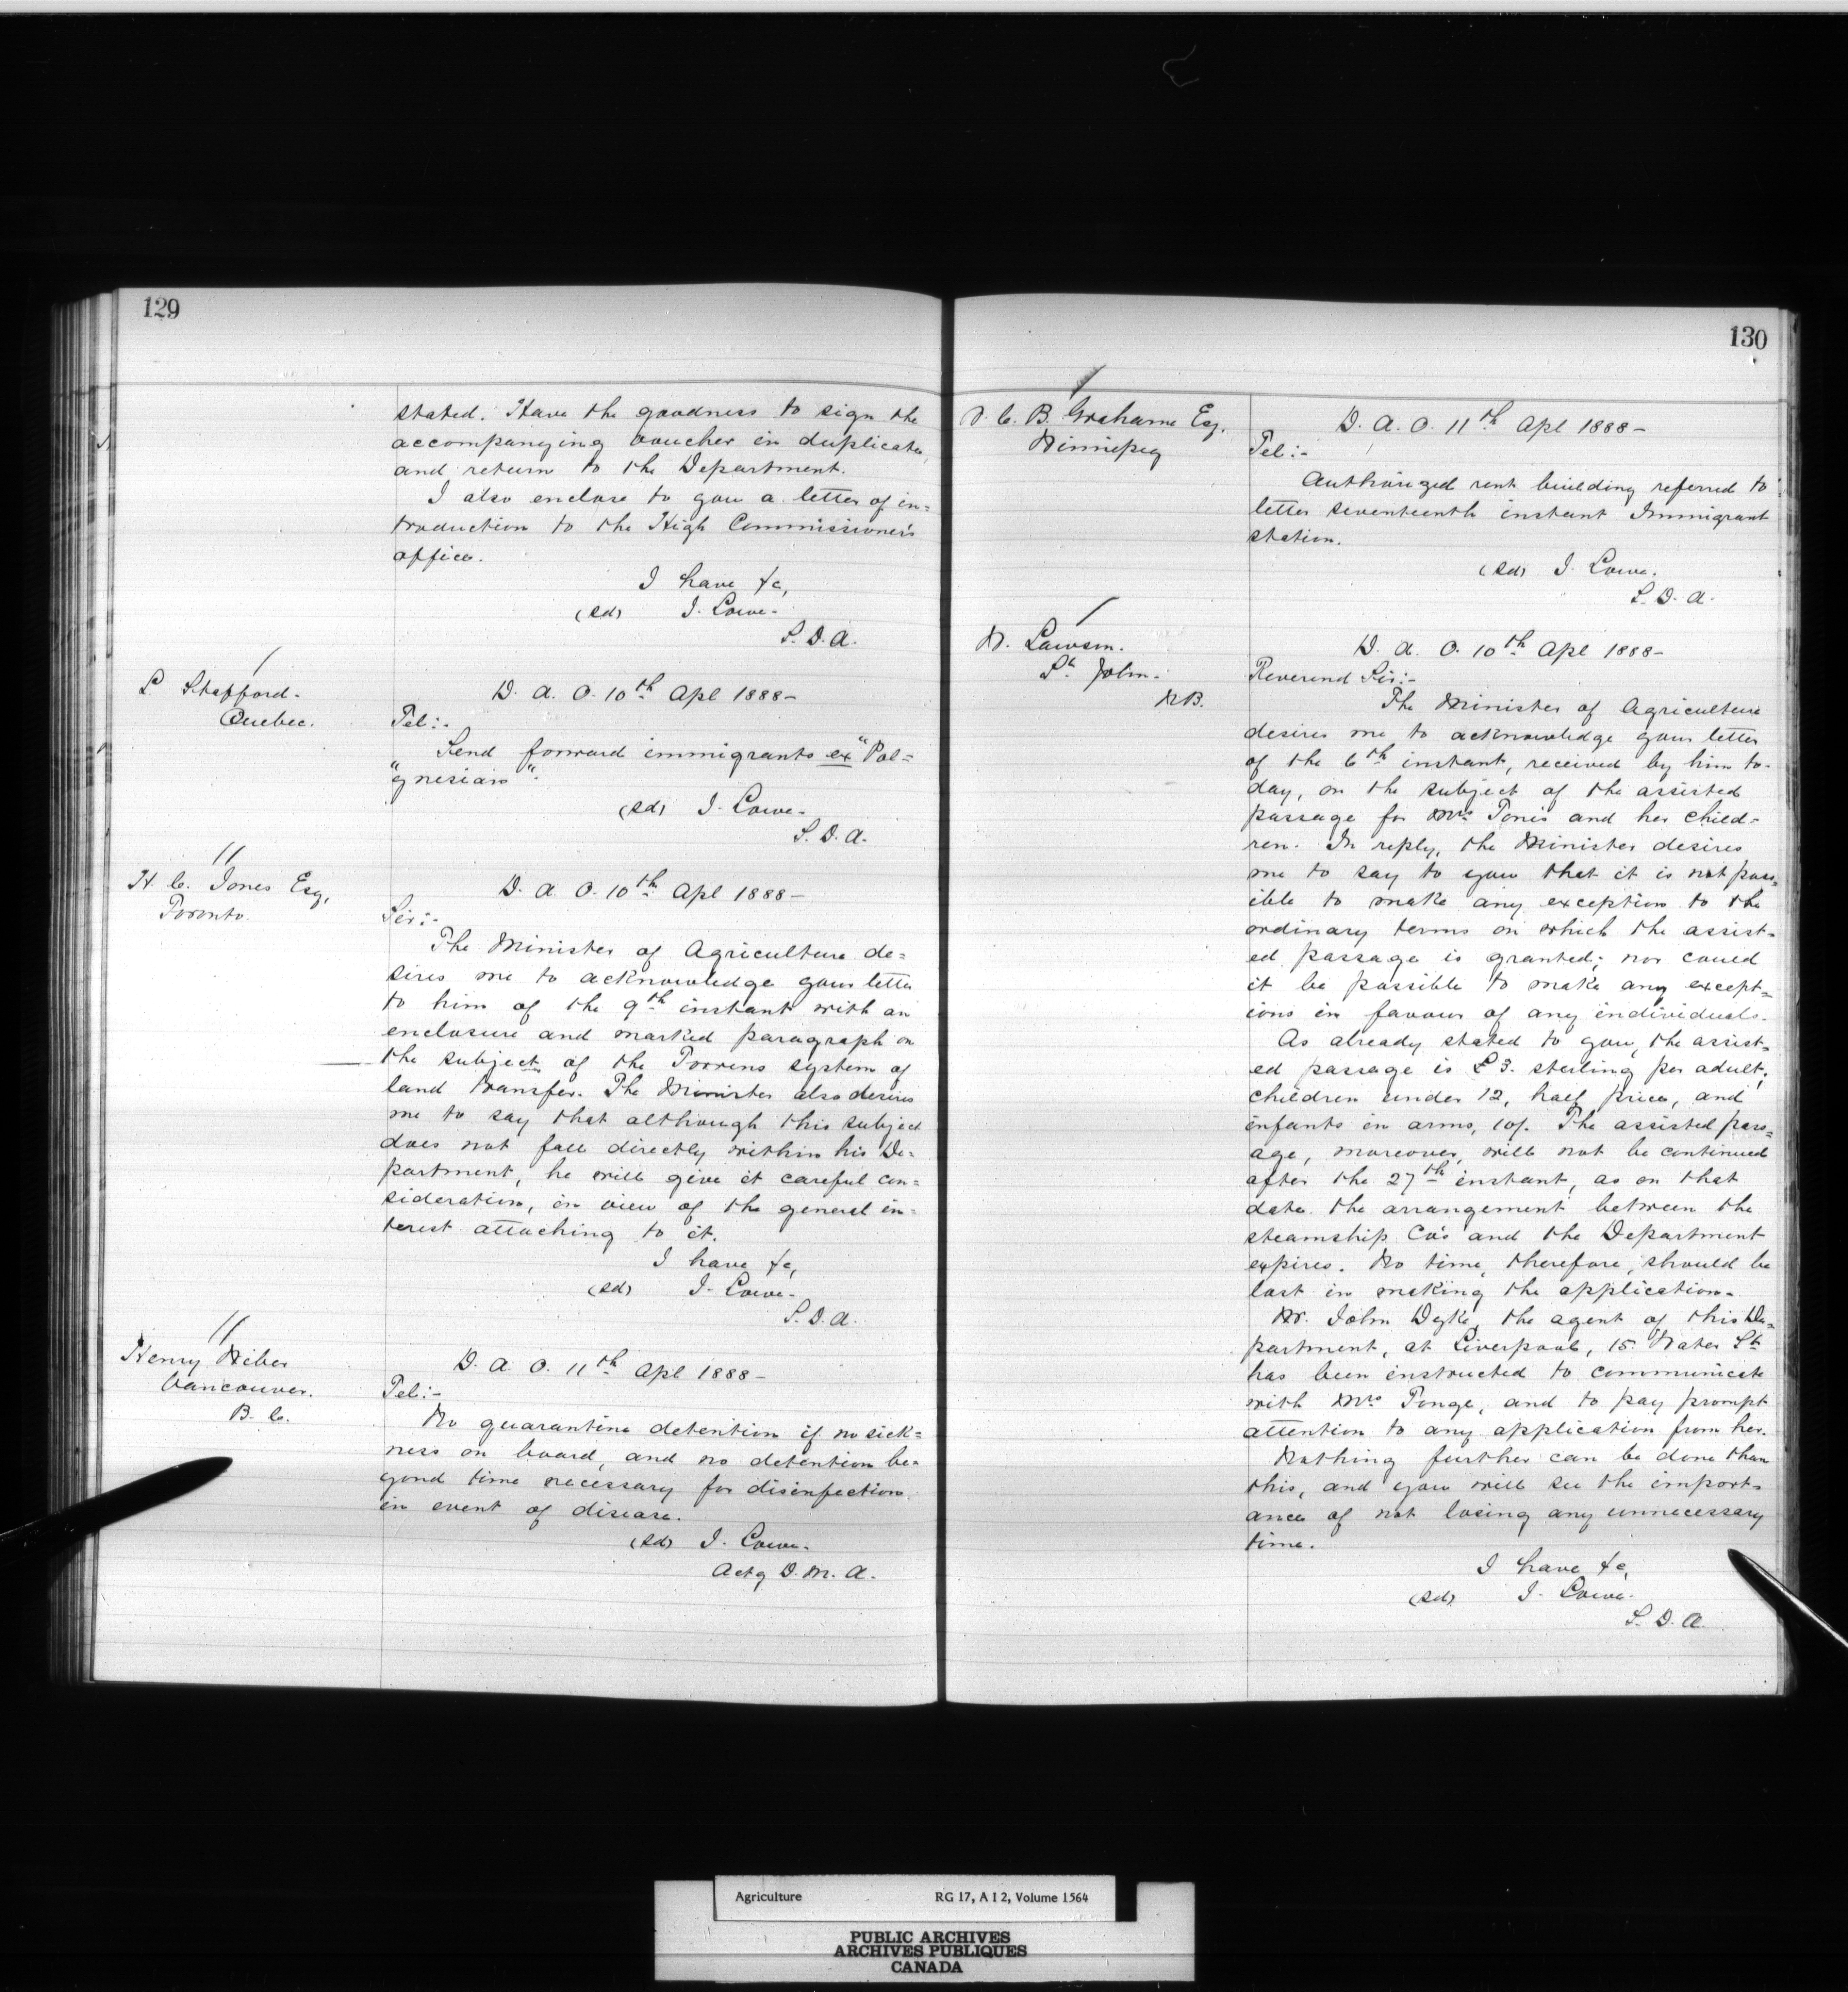 129
stated. Have the goodness to sign the
accompanying voucher in duplicate,
and return to the Department.
I also enclose to you a letter of in=
troduction to the High Commissioner's
office.
I have &c,
(sd) J. Lowe.
S. D. A.
L Stafford.
Quebec.
D. A. O. 10th Apl 1888-
Tel:-
Send forward immigrants ex "Pol=
"ynesian".
(sd) J. Lowe.
S. D. A.
H. C. Jones Esq,
Toronto.
D. A. O. 10th Apl 1888-
Sir:-
The Minister of Agriculture de=
sires me to acknowledge your letter
to him of the 9th instant with an
enclosure and marked paragraph on
the subject of the Torrens system of
land transfer. The Minister also desires
me to say that although this subject
does not fall directly within his De=
partment, he will give it careful con=
sideration, in view of the general in=
terest attaching to it.
I have &c,
(sd) J. Lowe.
S. D. A.
Henry
Vancouver.
B. C.
D. A. O. 11th Apl 1888-
Tel:-
No quarantine detention if no sick=
ness on board, and no detention be=
yond time necessary for disinfection
in event of disease.
(sd) J. Lowe.
Actg D. M. A.
130
C. B. Grahame Esq.
Winnipeg
D. A. O. 11th Apl 1888-
Tel:-
Authorized rent building referred to
letter seventeenth instant Immigrant
station.
(sd) J. Lowe.
S. D. A.
Lawson.
St John.
N B.
D. A. O. 10th Apl 1888-
Reverend Sir:-
The Minister of Agriculture
desires me to acknowledge your letter
of the 6th instant, received by him to-
day, on the subject of the assisted
passage for Mrs and her child=
ren. In reply, the Minister desires
me to say to you that it is not poss=
ible to make any exception to the
ordinary terms on which the assist=
ed passage is granted; nor could
it be possible to make any except=
ions in favour of any individuals.
As already stated to you, the assist=
ed passage is £3. sterling per adult;
children under 12, half price, and
infants in arms, 10/. The assisted pass=
age, moreover, will not be continued
after the 27th instant, as on that
date the arrangement between the
steamship Co's and the Department
expires. No time, therefore, should be
lost in making the application.
Mr. John Dyke, the agent of this De=
partment, at Liverpool, 15 Water St.
has been instructed to communicate
with Mrs Tonge, and to pay prompt
attention to any application from her.
Nothing further can be done than
this, and you will see the import=
ance of not losing any unnecessary
time.
I have &c,
(sd) J. Lowe.
S. D. A.
Agriculture RG 17, A I 2, Volume 1564
PUBLIC ARCHIVES
ARCHIVES PUBLIQUES
CANADA